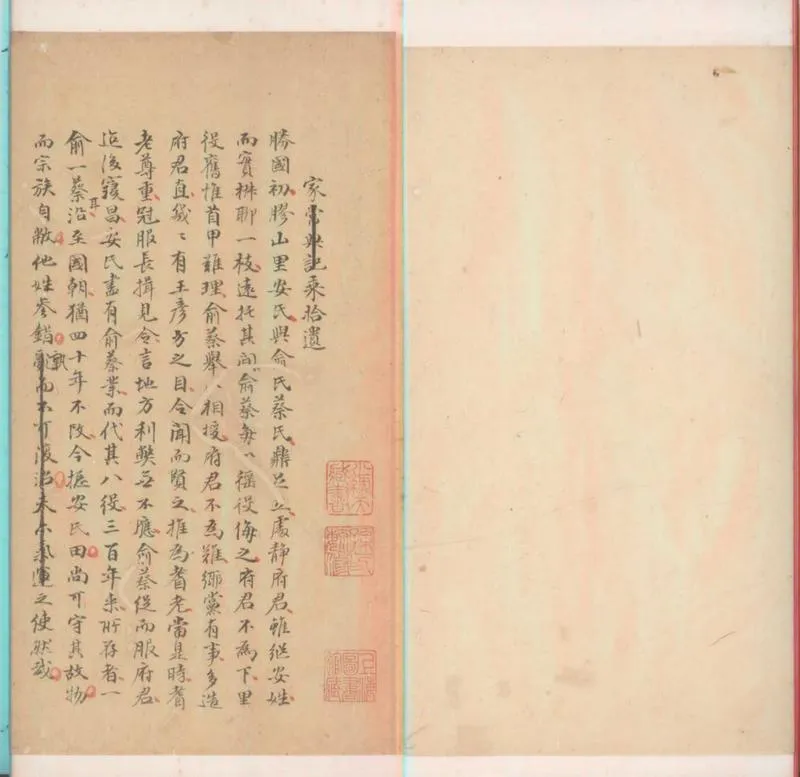 家常典記乘拾遺
勝國初膠山里安氏與俞氏蔡氏鼎足立處静府君雖繼安姓
而實椒聊一枝遠托其間俞蔡每以徭役侮之府君不為下里
役舊惟首甲難理俞蔡舉以相授府君不為難鄉黨有事多造
府君直之有王彥方之目令聞而賢之推為耆老當是時耆
老尊重冠服長揖見令言地方利弊無不應俞蔡從而服府君
迨後寖昌安氏盡有俞蔡業而代其八役三百年來所存者一
俞一蔡耳沿至國朝猶四十年不改今據安氏田尚可守其故物
而宗族自散他姓參錯而不可復治夫亦氣運之使然哉